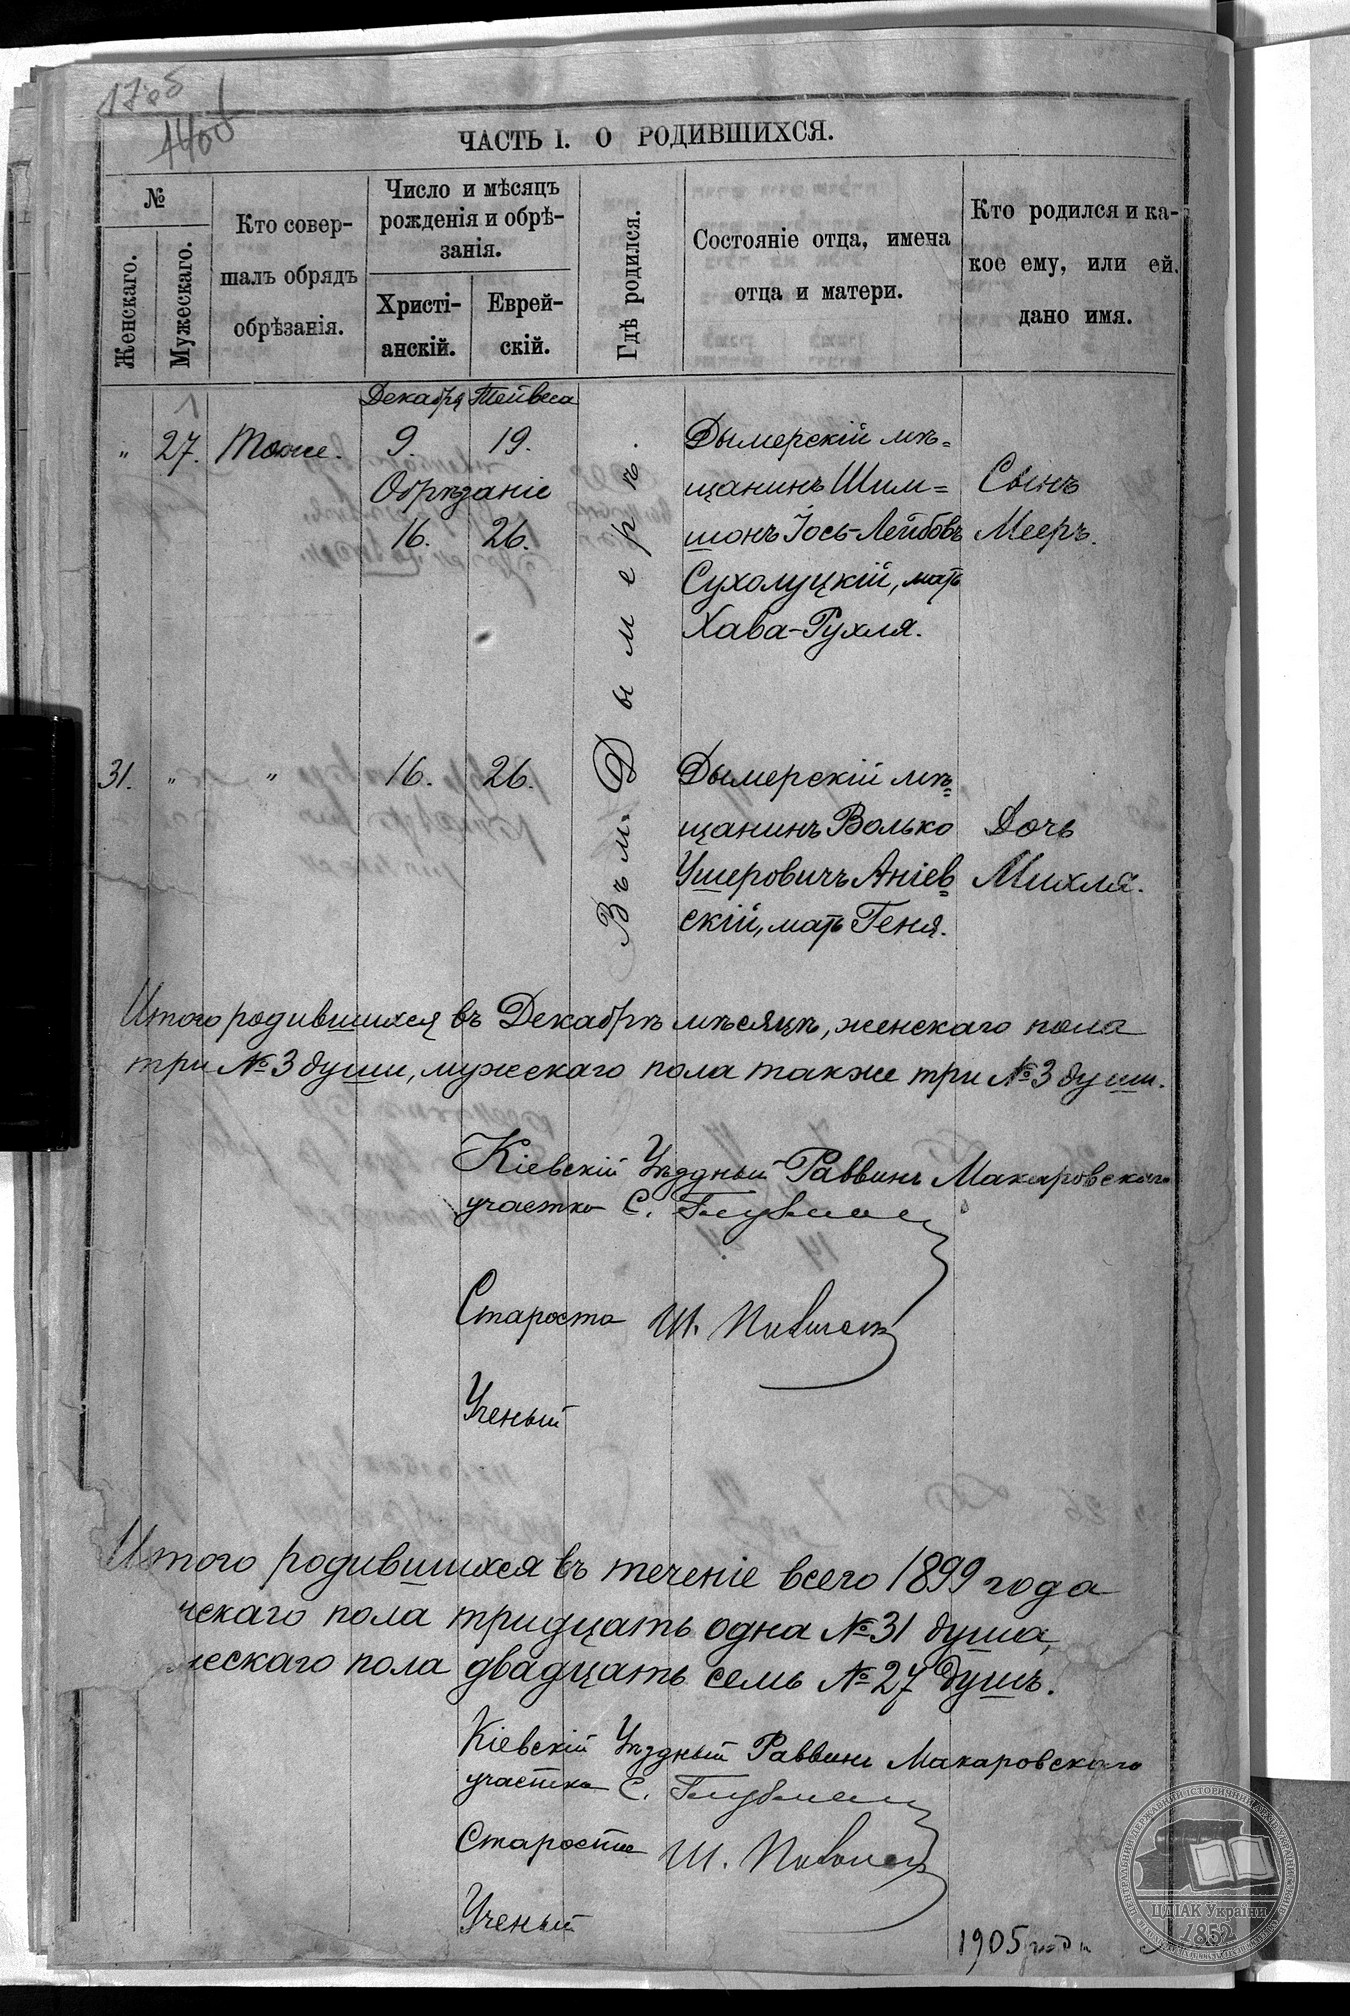 ЧАСТЬ I. О РОДИВШИХСЯ.
№
Женскаго.
Мужескаго.
Кто совер-
шалъ обрядъ
обрѣзанія.
Число и мѣсяцъ
рожденія и обрѣ-
занія.
Христі-
анскій.
Еврей-
скій.
Гдѣ родился.
Состояніе отца, имена
отца и матери.
Кто родился и ка-
кое ему, или ей.
дано имя.
Декабря Тейвеса
" 27. Тоже. 9. 19.
Обрѣзаніе
16. 26.
Въ м. Дымерѣ.
Дымерскій мѣ=
щанинъ Шим=
шонъ Іось-Лейбовъ
Сухолуцкій, мать
Хава-Рухля.
Сынъ
Мееръ.
31. " " 16. 26.
Дымерскій мѣ=
щанинъ Волько
Ушеровичъ Аніев=
скій, мать Геня.
Дочь
Михля.
Итого родившихся въ Декабрѣ мѣсяцѣ, женскаго пола
три №3 души, мужескаго пола также три №3 души.
Кіевскій Уѣздный Раввинъ Макаровскаго
участка С.
Староста Ш.
Ученый
Итого родившихся въ теченіе всего 1899 года
нскаго пола тридцать одна №31 душа,
жескаго пола двадцать семь №27 душъ.
Кіевскій Уѣздный Раввинъ Макаровскаго
участка С.
Староста Ш.
Ученый
1905 года
ЦДІАК України
1852